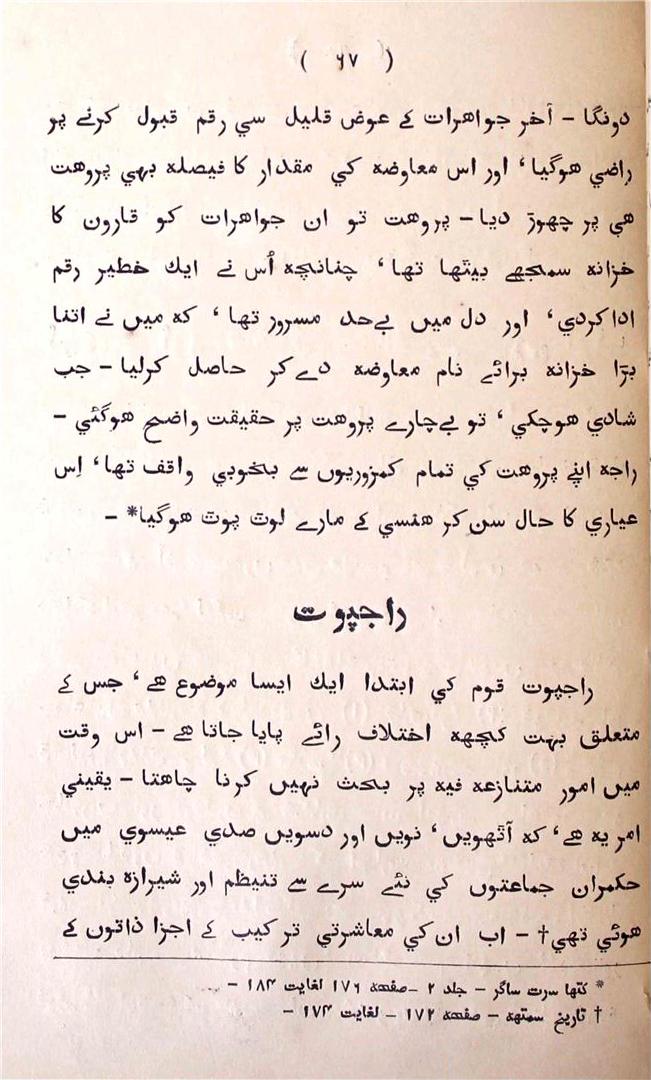 ( ۶۷ )
دونگا - آخر جواهرات کے عوض قلیل سي رقم قبول کرنے پر
راضي هوگیا ‘ اور اس معاوضه کي مقدار کا فیصله بهي پروهت
هي پر چهوڑ دیا - پروهت تو ان جواهرات کو قارون کا
خزانه سمجهے بیٹها تها ‘ چنانچه اُس نے ایک خطیر رقم
ادا کردي ‘ اور دل میں بےحد مسرور تها ‘ که میں نے اتنا
بڑا خزانه برائے نام معاوضه دے کر حاصل کرلیا - جب
شادي هوچکي ‘ تو بےچارے پروهت پر حقیقت واضح هوگئي -
راجه اپنے پروهت کي تمام کمزوریوں سے بخوبي واقف تها ‘ اِس
عیاري کا حال سن کر هنسي کے مارے لوٹ پوٹ هوگیا* -
راجپوت
راجپوت قوم کي ابتدا ایک ایسا موضوع هے ‘ جس کے
متعلق بہت کچهه اختلاف رائے پایا جاتا هے - اس وقت
میں امور متنازعه فیه پر بحث نہیں کرنا چاهتا - یقیني
امر یه هے ‘ که آٹهویں ‘ نویں اور دسویں صدي عیسوي میں
حکمران جماعتوں کي نئے سرے سے تنیظم اور شیرازه بندي
هوئي تهي† - اب ان کي معاشرتي ترکیب کے اجزا ذاتوں کے
* کتها سرت ساگر - جلد ۲ - صفحه ۱۷۶ لغایت ۱۸۴ -
† تاریخ سمتهه - صفحه ۱۷۲ - لغایت ۱۷۴ -